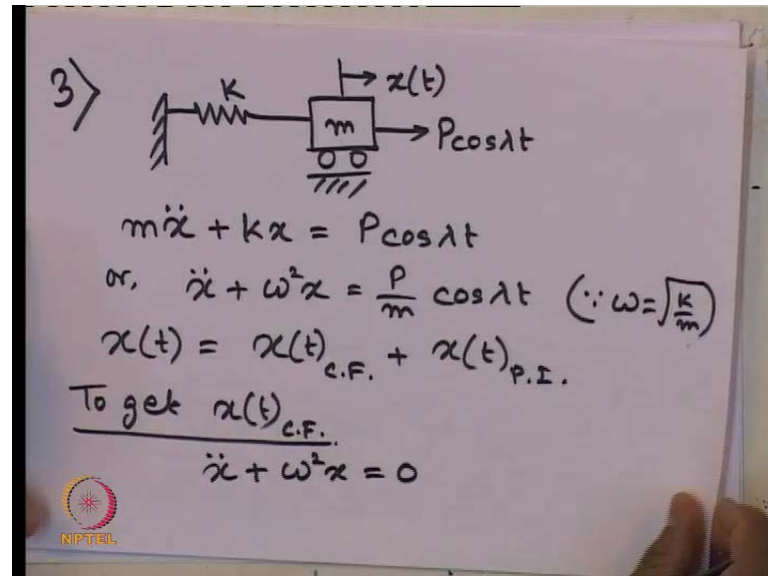 3>
K
x(t)
m
P cos λt
mẍ + kx = P cos λt
or, ẍ + ω²x = P/m cos λt (∵ ω = √k/m)
x(t) = x(t)C.F. + x(t)P.I.
To get x(t)C.F.
ẍ + ω²x = 0
NPTEL